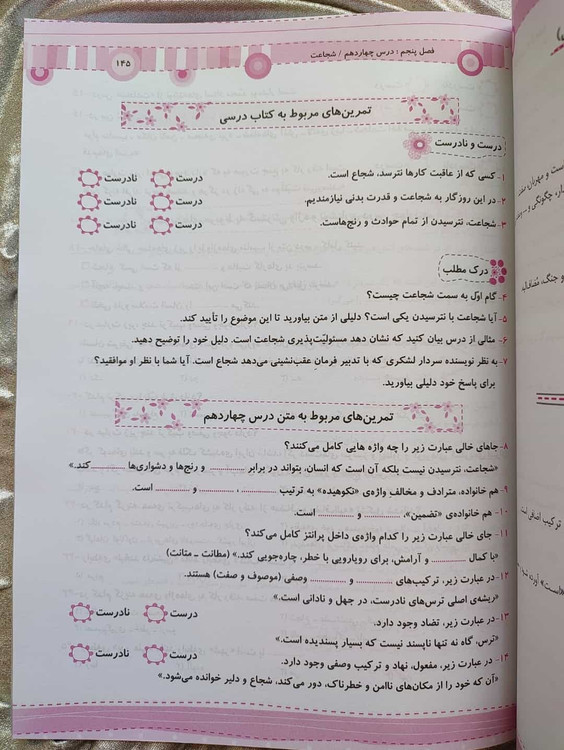 فصل پنجم : درس چهاردهم / شجاعت
۱۴۵
تمرین‌های مربوط به کتاب درسی
درست و نادرست
۱- کسی که از عاقبت کارها نترسد، شجاع است. درست نادرست
۲- در این روزگار به شجاعت و قدرت بدنی نیازمندیم. درست نادرست
۳- شجاعت، نترسیدن از تمام حوادث و رنج‌هاست. درست نادرست
درک مطلب
۴- گام اوّل به سمت شجاعت چیست؟
۵- آیا شجاعت با نترسیدن یکی است؟ دلیلی از متن بیاورید تا این موضوع را تأیید کند.
۶- مثالی از درس بیان کنید که نشان دهد مسئولیّت‌پذیری شجاعت است. دلیل خود را توضیح دهید.
۷- به نظر نویسنده سردار لشکری که با تدبیر فرمان عقب‌نشینی می‌دهد شجاع است. آیا شما با نظر او موافقید؟
برای پاسخ خود دلیلی بیاورید.
تمرین‌های مربوط به متن درس چهاردهم
۸- جاهای خالی عبارت زیر را چه واژه هایی کامل می‌کنند؟
«شجاعت، نترسیدن نیست بلکه آن است که انسان، بتواند در برابر .......... و رنج‌ها و دشواری‌ها .......... کند.»
۹- هم خانواده، مترادف و مخالف واژه‌ی «نکوهیده» به ترتیب .......... ، .......... و .......... است.
۱۰- هم خانواده‌ی «تضمین»، .......... و .......... است.
۱۱- جای خالی عبارت زیر را کدام واژه‌ی داخل پرانتز کامل می‌کند؟
«با کمال .......... و آرامش، برای رویارویی با خطر، چاره‌جویی کند.» (مطانت ـ متانت)
۱۲- در عبارت زیر، ترکیب‌های .......... و .......... وصفی (موصوف و صفت) هستند.
«ریشه‌ی اصلی ترس‌های نادرست، در جهل و نادانی است.»
۱۳- در عبارت زیر، تضاد وجود دارد. درست نادرست
«ترس، گاه نه تنها ناپسند نیست که بسیار پسندیده است.»
۱۴- در عبارت زیر، مفعول، نهاد و ترکیب وصفی وجود دارد. درست نادرست
«آن که خود را از مکان‌های ناامن و خطرناک، دور می‌کند، شجاع و دلیر خوانده می‌شود.»